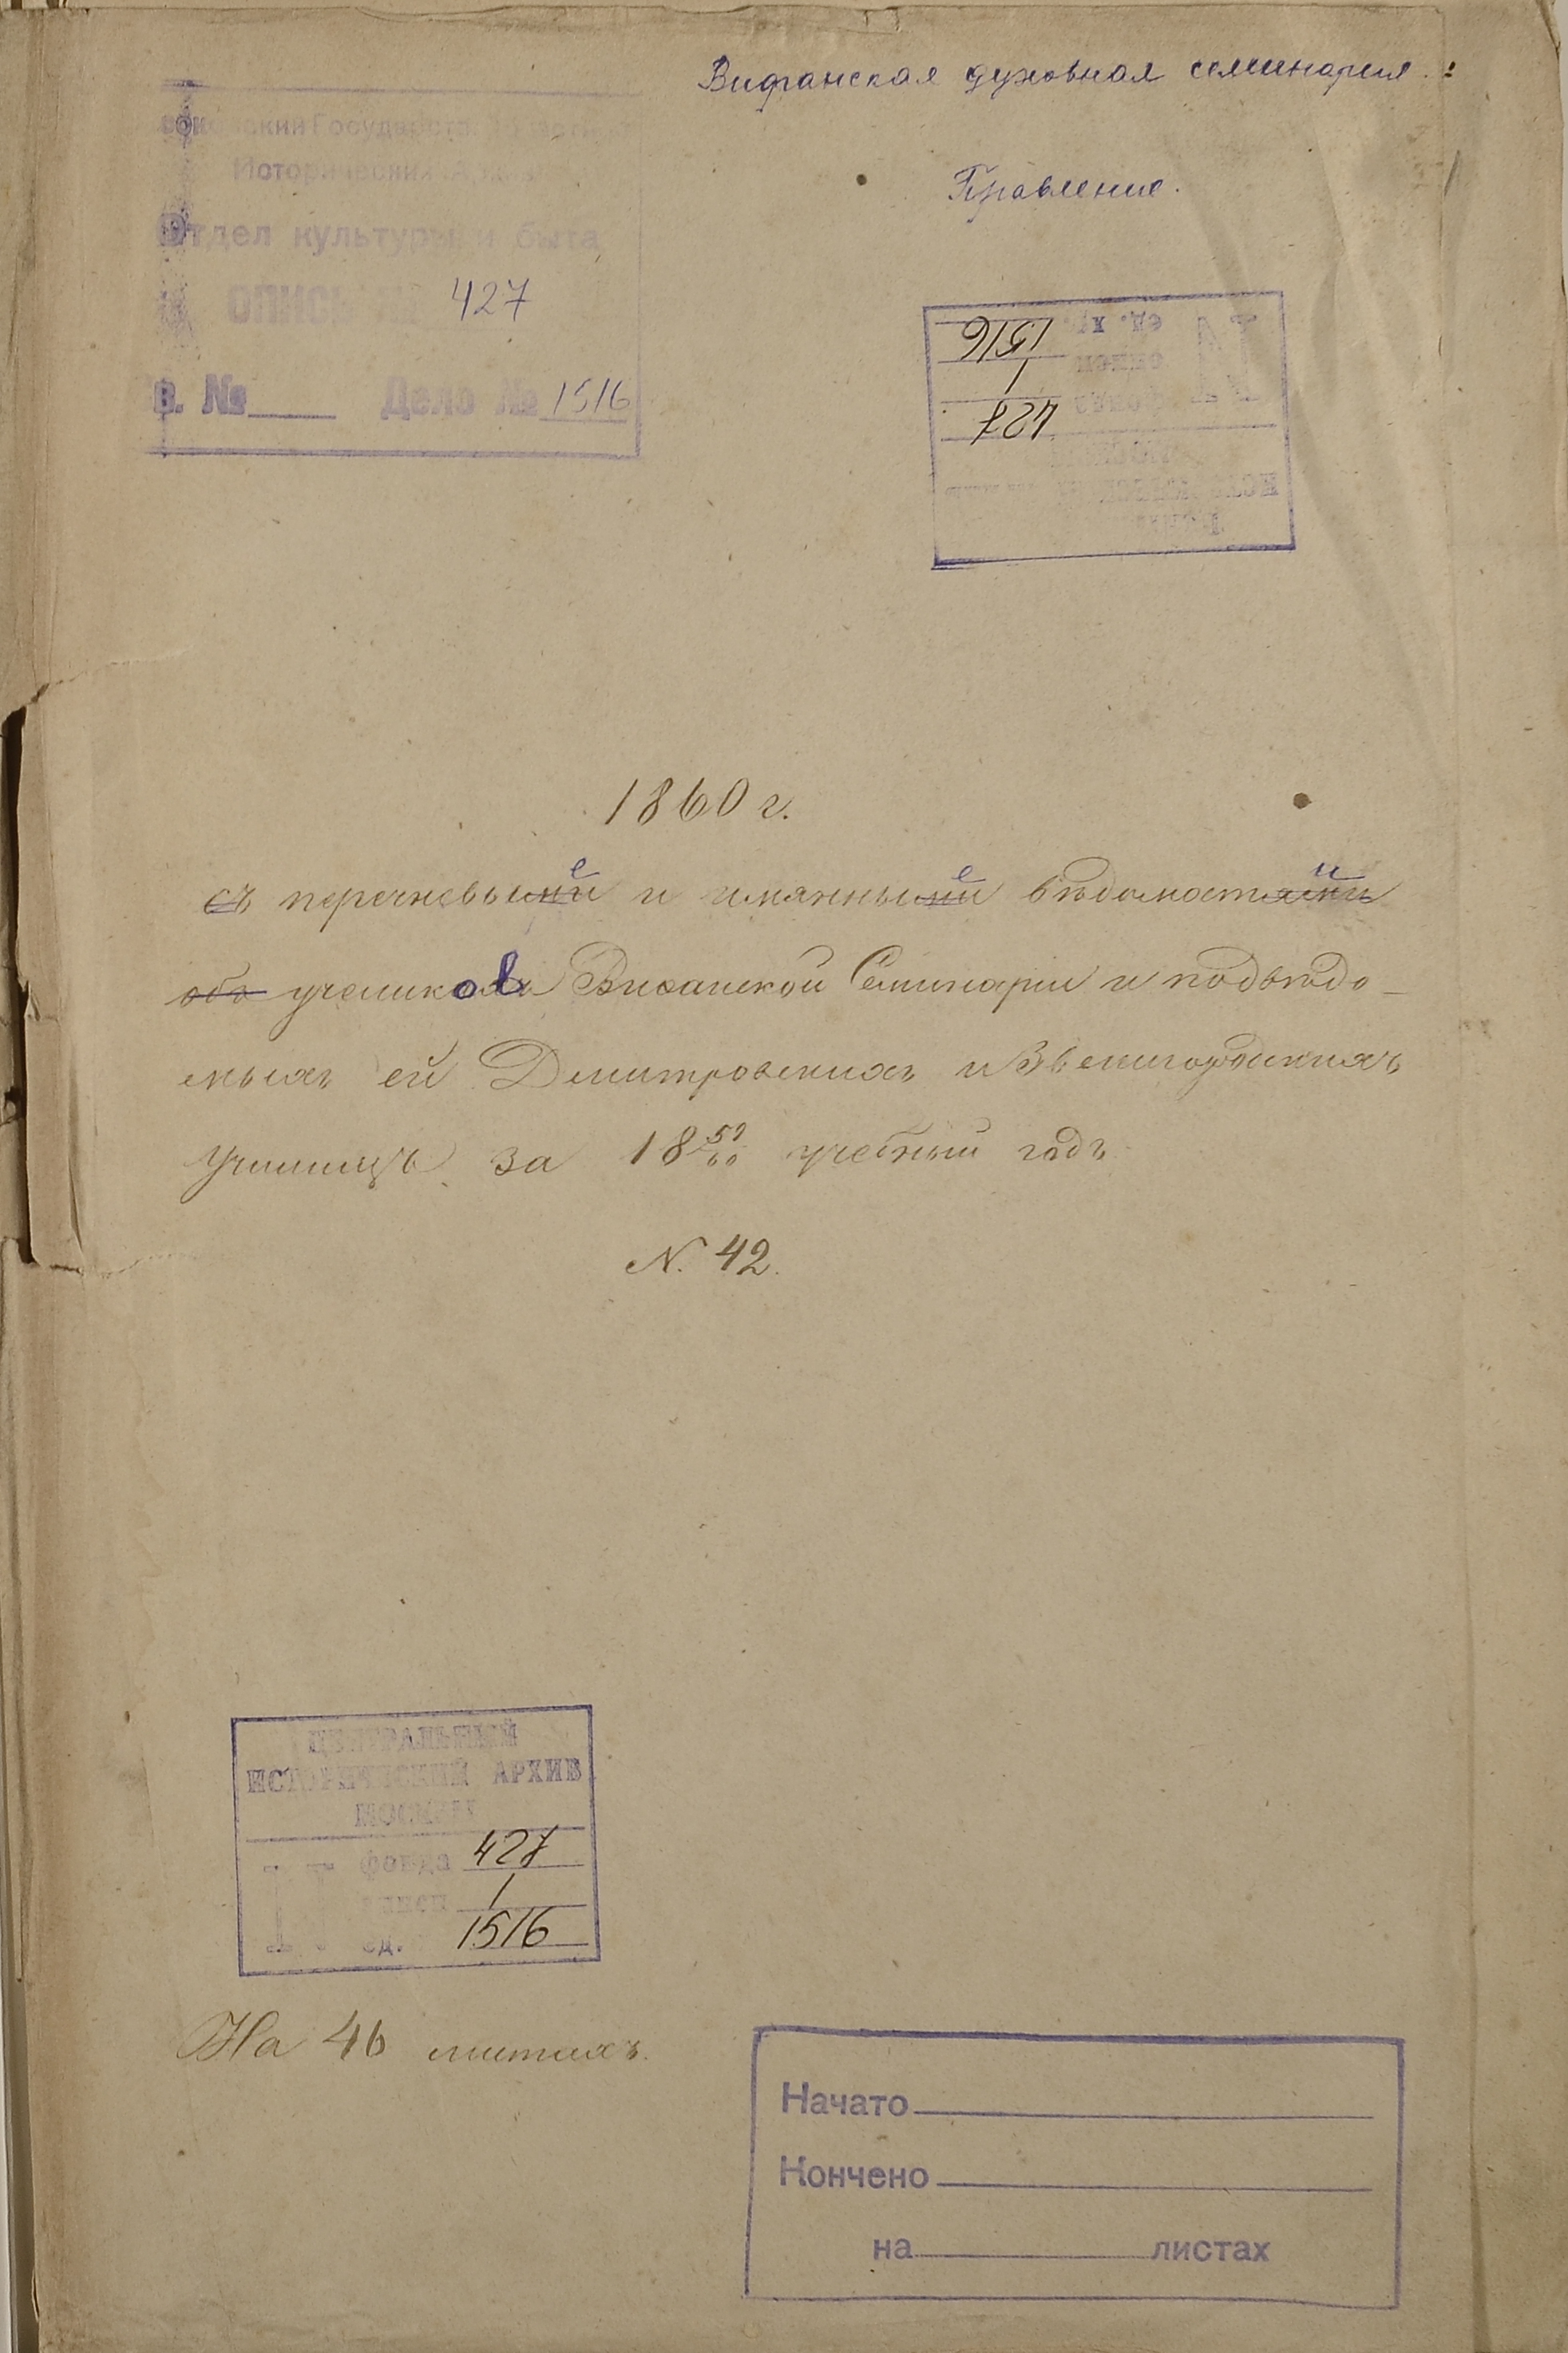 Вифанская духовная семинария.
Правление.
Московский Государств.
Исторический Архив
Отдел культуры и быта
ОПИСЬ № 427
в. № Дело № 1516
ед. хр. 1516
описи 1
фонда 427
1860 г.
съ перечневыми е и имянными е вѣдомостями и
объ ученикахъ ов Виѳанской Семинаріи и подвѣдо-
мыхъ ей Дмитровскихъ и Звенигородскихъ
училищъ за 18 59/60 учебный годъ
N. 42.
ЦЕНТРАЛЬНЫЙ
ИСТОРИЧЕСКИЙ АРХИВ
МОСКВЫ
фонда 427
описи 1
ед. 1516
На 46 листахъ.
Начато
Кончено
на листах